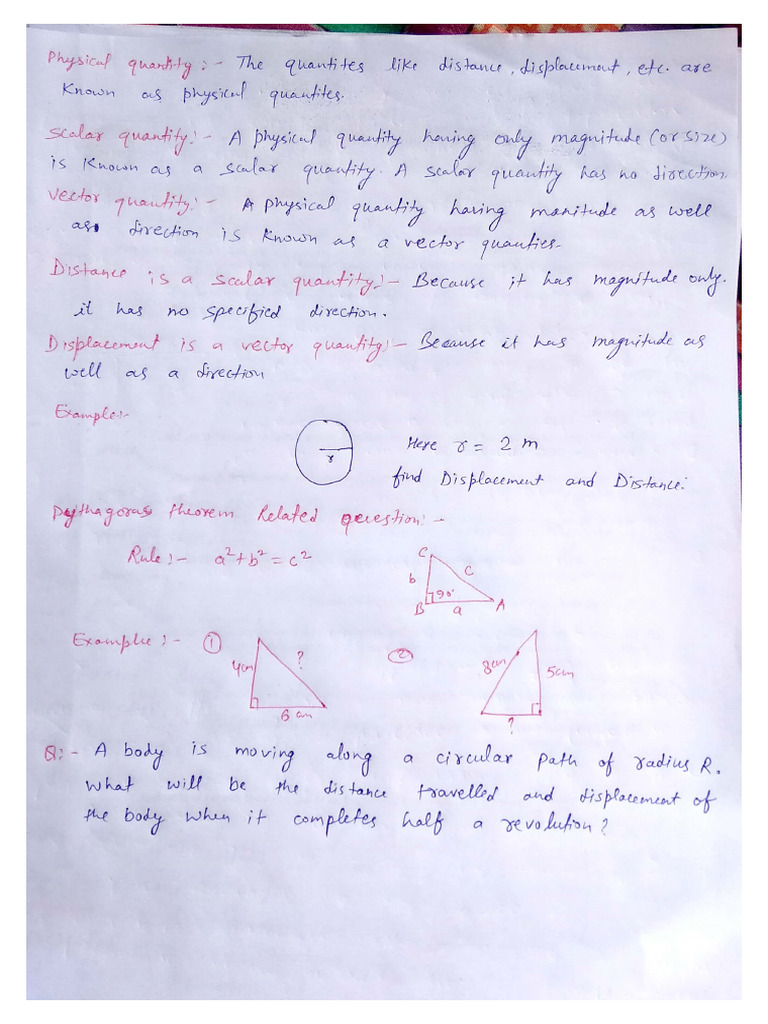 Physical quantity :- The quantites like distance, displacement, etc. are
known as physical quantites.
Scalar quantity:- A physical quantity having only magnitude (or size)
is known as a scalar quantity. A scalar quantity has no direction.
Vector quantity:- A physical quantity having manitude as well
as direction is known as a vector quanties.
Distance is a scalar quantity:- Because it has magnitude only.
it has no specified direction.
Displacement is a vector quantity:- Because it has magnitude as
well as a direction
Example:-
r
Here r = 2 m
find Displacement and Distance.
Pythagoras theorem Related question:-
Rule:- a²+b²=c²
C
b
c
90°
B
a
A
Example:- ①
4cm
?
6 cm
②
8cm
5cm
?
Q:- A body is moving along a circular path of radius R.
What will be the distance travelled and displacement of
the body when it completes half a revolution?